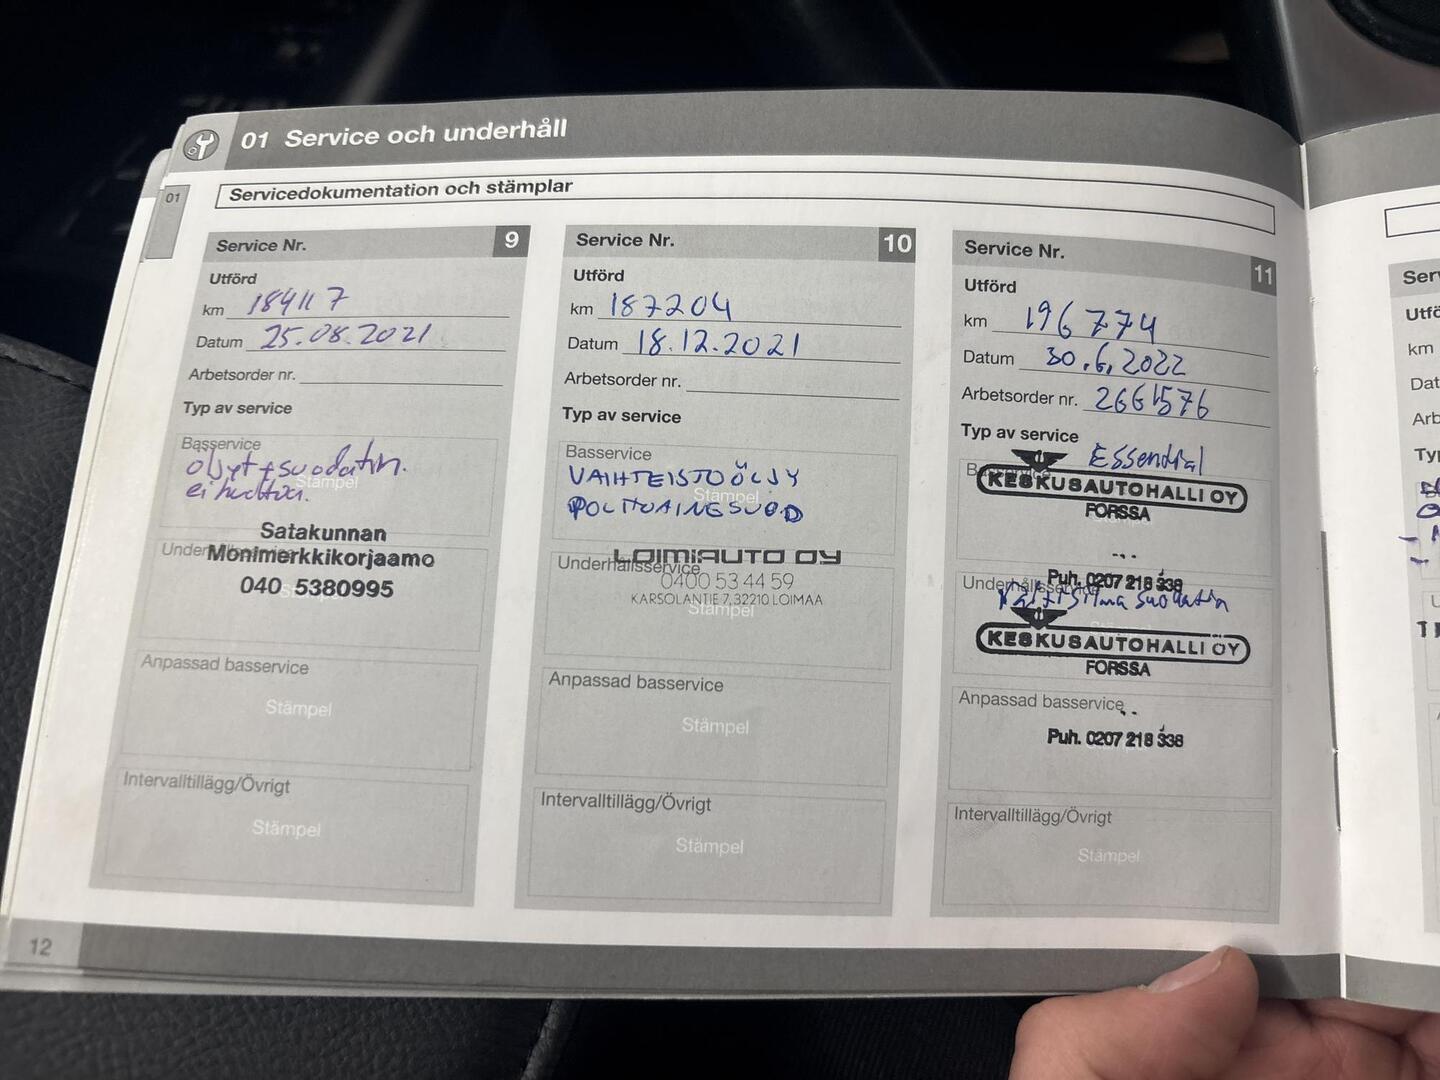 01 Service och underhåll
01
Servicedokumentation och stämplar
Service Nr. 9
Utförd
km 184117
Datum 25.08.2021
Arbetsorder nr.
Typ av service
Basservice
öljyt + suodatin.
Stämpel
Satakunnan
Underhållsservice
Monimerkkikorjaamo
040 5380995
Anpassad basservice
Stämpel
Intervalltillägg/Övrigt
Stämpel
Service Nr. 10
Utförd
km 187204
Datum 18.12.2021
Arbetsorder nr.
Typ av service
Basservice
VAIHTEISTOÖLJY
Stämpel
POLTTOAINESUOD
LOIMIAUTO OY
Underhållsservice
0400 53 44 59
KARSOLANTIE 7, 32210 LOIMAA
Stämpel
Anpassad basservice
Stämpel
Intervalltillägg/Övrigt
Stämpel
Service Nr. 11
Utförd
km 196774
Datum 30.6.2022
Arbetsorder nr. 2661576
Typ av service
Essential
Basservice
KESKUSAUTOHALLI OY
FORSSA
Puh. 0207 218 338
Underhållsservice
Raitisilma suodatin
KESKUSAUTOHALLI OY
FORSSA
Anpassad basservice
Puh. 0207 218 338
Intervalltillägg/Övrigt
Stämpel
12
Ser
Utfö
km
Dat
Arb
Typ